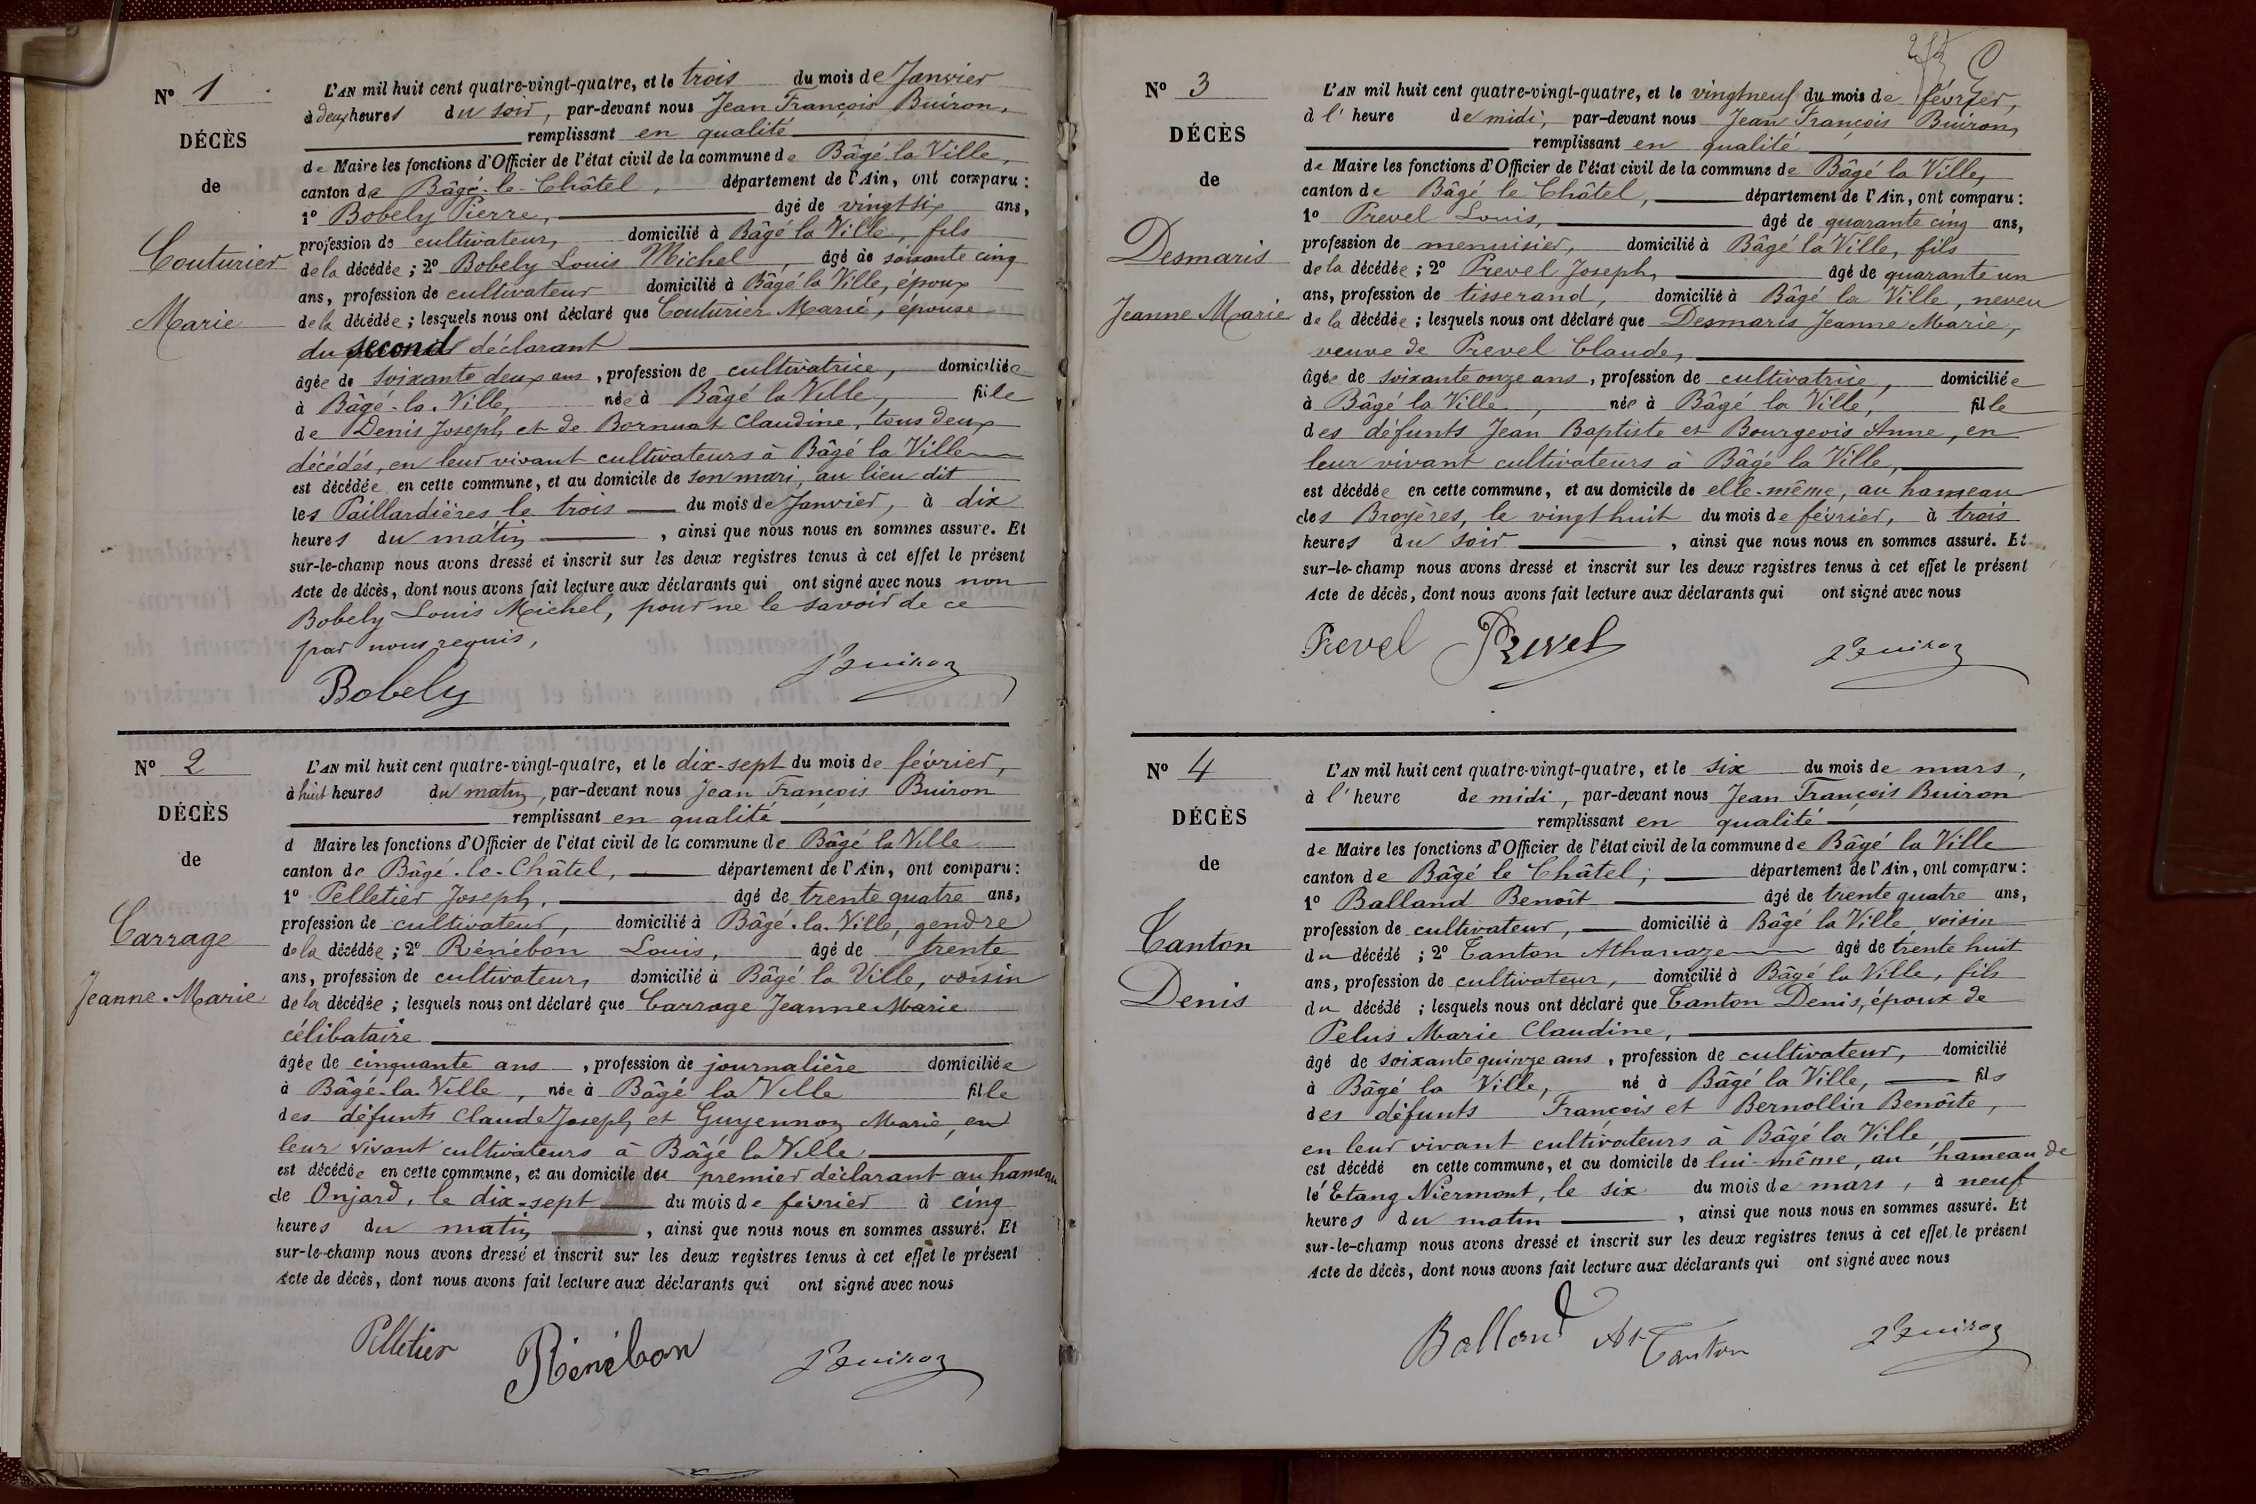 N° 1
DÉCÈS
de
Couturier
Marie
L'AN mil huit cent quatre-vingt-quatre, et le trois du mois de Janvier
à deux heures du soir, par-devant nous Jean François Buiron,
remplissant en qualité
de Maire les fonctions d'Officier de l'état civil de la commune de Bâgé la Ville,
canton de Bâgé-le-Châtel, département de l'Ain, ont comparu :
1° Bobely Pierre, âgé de vingt six ans,
profession de cultivateur, domicilié à Bâgé la Ville, fils
de la décédée ; 2° Bobely Louis Michel, âgé de soixante cinq
ans, profession de cultivateur domicilié à Bâgé la Ville, époux
de la décédée ; lesquels nous ont déclaré que Couturier Marie, épouse
du second déclarant
âgée de soixante deux ans, profession de cultivatrice, domiciliée
à Bâgé-la-Ville, née à Bâgé la Ville, fille
de Denis Joseph et de Bornuat Claudine, tous deux
décédés, en leur vivant cultivateurs à Bâgé la Ville
est décédée en cette commune, et au domicile de son mari, au lieu dit
les Paillardières le trois du mois de Janvier, à dix
heures du matin, ainsi que nous nous en sommes assuré. Et
sur-le-champ nous avons dressé et inscrit sur les deux registres tenus à cet effet le présent
Acte de décès, dont nous avons fait lecture aux déclarants qui ont signé avec nous non
Bobely Louis Michel, pour ne le savoir de ce
par nous requis,
Bobely Buiron
N° 2
DÉCÈS
de
Carrage
Jeanne-Marie
L'AN mil huit cent quatre-vingt-quatre, et le dix-sept du mois de février,
à huit heures du matin, par-devant nous Jean François Buiron
remplissant en qualité
d Maire les fonctions d'Officier de l'état civil de la commune de Bâgé la Ville
canton de Bâgé-le-Châtel, département de l'Ain, ont comparu :
1° Pelletier Joseph, âgé de trente quatre ans,
profession de cultivateur, domicilié à Bâgé-la-Ville, gendre
de la décédée ; 2° Rénébon Louis, âgé de trente
ans, profession de cultivateur, domicilié à Bâgé la Ville, voisin
de la décédée ; lesquels nous ont déclaré que Carrage Jeanne Marie
célibataire
âgée de cinquante ans, profession de journalière domiciliée
à Bâgé-la-Ville, née à Bâgé la Ville fille
des défunts Claude Joseph et Guyennon Marie, en
leur vivant cultivateurs à Bâgé la Ville
est décédée en cette commune, et au domicile du premier déclarant au hameau
de Onjard, le dix-sept du mois de février à cinq
heures du matin, ainsi que nous nous en sommes assuré. Et
sur-le-champ nous avons dressé et inscrit sur les deux registres tenus à cet effet le présent
Acte de décès, dont nous avons fait lecture aux déclarants qui ont signé avec nous
Pelletier Rénébon Buiron
N° 3
DÉCÈS
de
Desmaris
Jeanne Marie
L'AN mil huit cent quatre-vingt-quatre, et le vingt neuf du mois de février,
à l'heure de midi, par-devant nous Jean François Buiron,
remplissant en qualité
de Maire les fonctions d'Officier de l'état civil de la commune de Bâgé la Ville,
canton de Bâgé le Châtel, département de l'Ain, ont comparu :
1° Prevel Louis, âgé de quarante cinq ans,
profession de menuisier, domicilié à Bâgé la Ville, fils
de la décédée ; 2° Prevel Joseph, âgé de quarante un
ans, profession de tisserand, domicilié à Bâgé la Ville, neveu
de la décédée ; lesquels nous ont déclaré que Desmaris Jeanne Marie,
veuve de Prevel Claude,
âgée de soixante onze ans, profession de cultivatrice, domiciliée
à Bâgé la Ville, née à Bâgé la Ville, fille
des défunts Jean Baptiste et Bourgeois Anne, en
leur vivant cultivateurs à Bâgé la Ville,
est décédée en cette commune, et au domicile de elle-même, au hameau
des Broyères, le vingt huit du mois de février, à trois
heures du soir, ainsi que nous nous en sommes assuré. Et
sur-le-champ nous avons dressé et inscrit sur les deux registres tenus à cet effet le présent
Acte de décès, dont nous avons fait lecture aux déclarants qui ont signé avec nous
Prevel Prevel Buiron
N° 4
DÉCÈS
de
Tanton
Denis
L'AN mil huit cent quatre-vingt-quatre, et le six du mois de mars,
à l'heure de midi, par-devant nous Jean François Buiron
remplissant en qualité
de Maire les fonctions d'Officier de l'état civil de la commune de Bâgé la Ville
canton de Bâgé le Châtel, département de l'Ain, ont comparu :
1° Balland Benoît âgé de trente quatre ans,
profession de cultivateur, domicilié à Bâgé la Ville, voisin
du décédé ; 2° Tanton Athanaze âgé de trente huit
ans, profession de cultivateur, domicilié à Bâgé la Ville, fils
du décédé ; lesquels nous ont déclaré que Tanton Denis, époux de
Pelus Marie Claudine,
âgé de soixante quinze ans, profession de cultivateur, domicilié
à Bâgé la Ville, né à Bâgé la Ville, fils
des défunts François et Bernollin Benoîte,
en leur vivant cultivateurs à Bâgé la Ville
est décédé en cette commune, et au domicile de lui-même, au hameau de
l'Etang Niermont, le six du mois de mars, à neuf
heures du matin, ainsi que nous nous en sommes assuré. Et
sur-le-champ nous avons dressé et inscrit sur les deux registres tenus à cet effet le présent
Acte de décès, dont nous avons fait lecture aux déclarants qui ont signé avec nous
Balland At Tanton Buiron